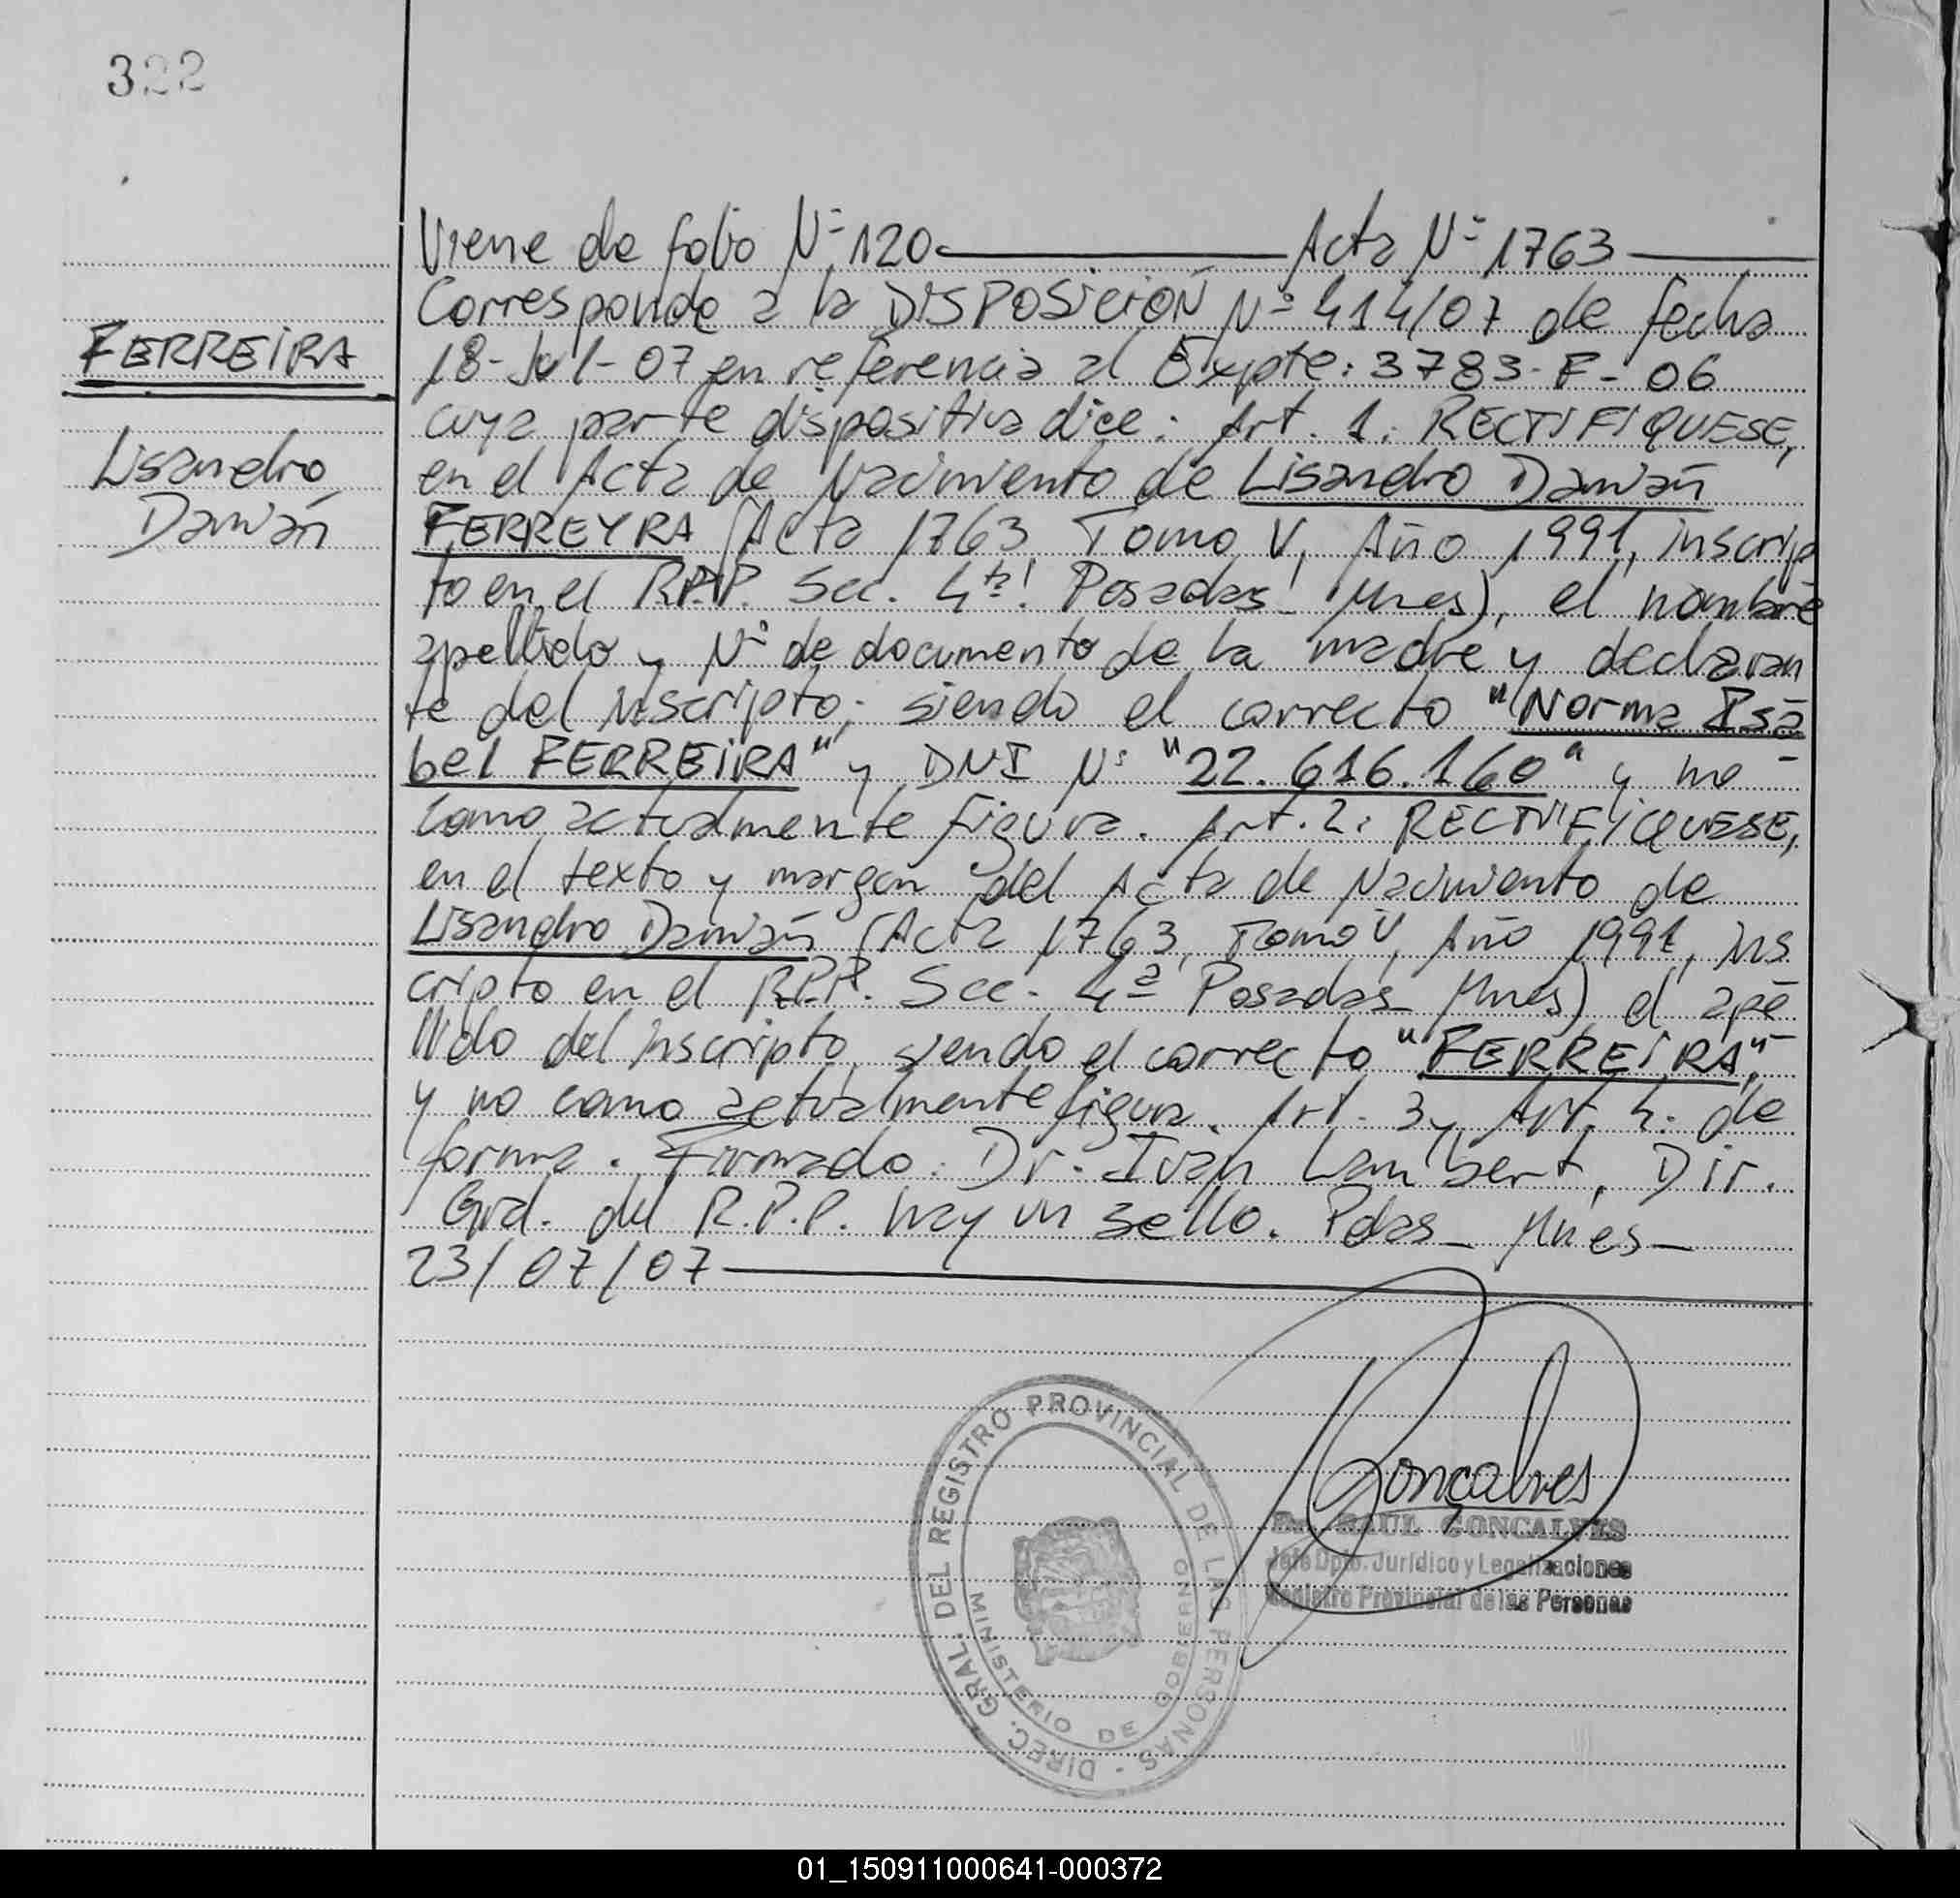 322
Viene de folio Nº 120. Acta Nº 1763
Corresponde a la DISPOSICIÓN Nº 414/07 de fecha
FERREIRA
18-Jul-07 en referencia al Expte: 3783-F-06
cuya parte dispositiva dice: Art. 1: RECTIFIQUESE,
Lisandro
Damián
en el Acta de Nacimiento de Lisandro Damián
FERREYRA (Acta 1763, Tomo V, Año 1991, inscrip
to en el R.P.P. Sec. 4ta. Posadas - Mnes), el nombre
apellido y Nº de documento de la madre y declaran
te del inscripto; siendo el correcto "Norma Isa
bel FERREIRA" y DNI Nº "22.616.160" y no -
como actualmente figura. Art. 2: RECTIFIQUESE,
en el texto y margen del Acta de Nacimiento de
Lisandro Damián (Acta 1763, Tomo V, Año 1991, ins
cripto en el R.P.P. Sec. 4ª Posadas - Mnes) el ape
llido del inscripto, siendo el correcto "FERREIRA",
y no como actualmente figura. Art. 3 y Art. 4: de
forma. Firmado: Dr. Iván Lambert, Dir.
Gral. del R.P.P. hay un sello. Pdas - Mnes -
23/07/07
Gonçalves
RAUL GONCALVES
Jefe Dpto. Jurídico y Legalizaciones
Registro Provincial de las Personas
DIREC. GRAL. DEL REGISTRO PROVINCIAL DE LAS PERSONAS -
MINISTERIO DE GOBIERNO
01_150911000641-000372